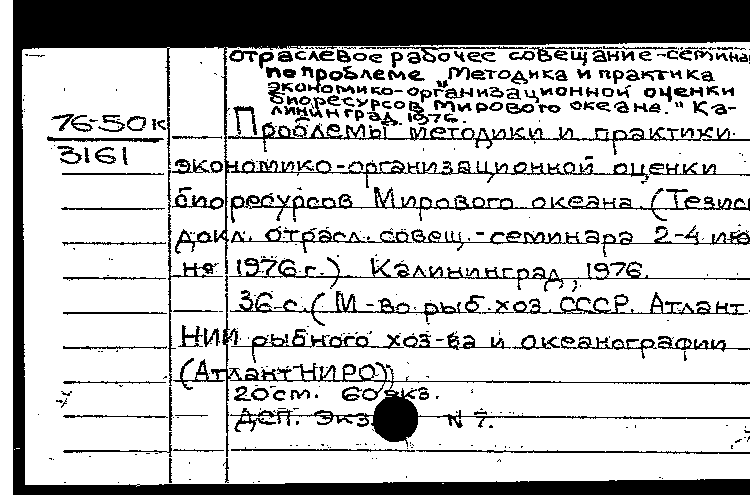 отраслевое рабочее совещание-семина
по проблеме "Методика и практика
экономико-организационной оценки
биоресурсов Мирового океана." Ка-
лининград, 1976.
76-50к
3161
Проблемы методики и практики
экономико-организационной оценки
биоресурсов Мирового океана. (Тезис
докл. отрасл. совещ.-семинара 2-4 ию
ня 1976 г.) Калининград, 1976.
36 с. (М-во рыб. хоз. СССР. Атлант.
НИИ рыбного хоз-ва и океанографии
(АтлантНИРО))
20 см. 60 экз.
ДСП. Экз. N 7.